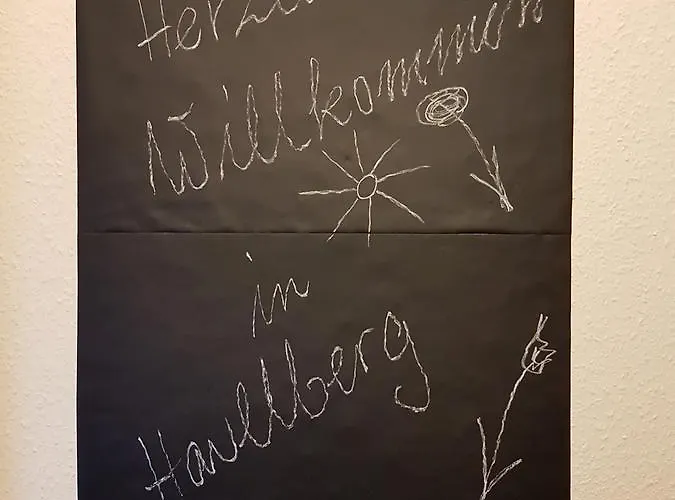 Herzli
Willkommen
in
Havelberg